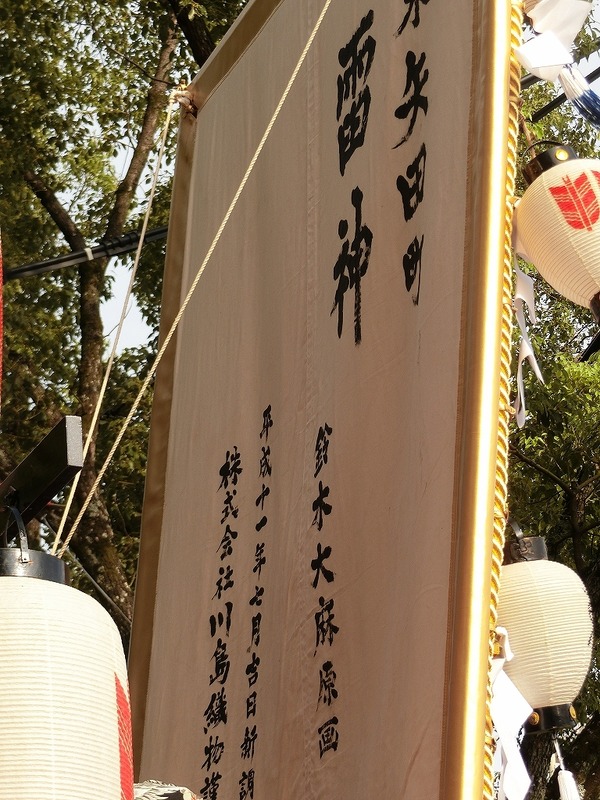 矢田町
雷神
鈴木大麻原画
平成十一年七月吉日新調
株式会社川島織物謹